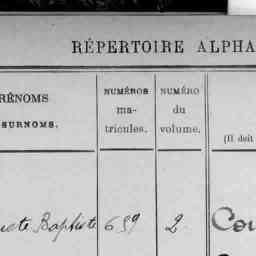 RÉPERTOIRE ALPHA
RÉNOMS
SURNOMS.
NUMÉROS
ma-
tricules.
NUMÉRO
du
volume.
(Il doit
Baptiste 659 2